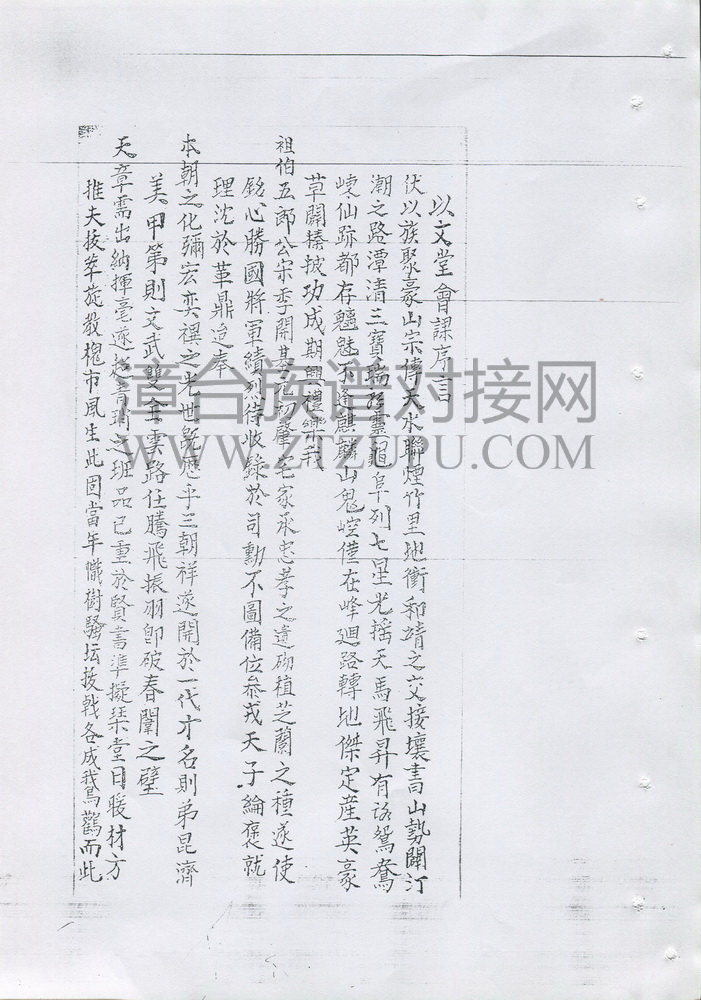 以文堂會課序言
伏以族聚豪山宗傳天水聯煙竹里地衝和靖之交接壤書山勢闢汀
潮之路潭清三寶瑞孕靈龜阜列七星光搖天馬飛昇有谽鴛鴦
崠仙跡都存魑魅不逢麒麟山鬼崆僅在峰迴路轉地傑定産英豪
草開榛披功成期興禮樂我
祖伯五郎公宋季開基元初肇宅家承忠孝之遺砌植芝蘭之種遂使
銘心勝國將軍績烈待收錄於司勳不圖備位叅戎天子綸褒就
理沈於革鼎迨奉
本朝之化彌宏奕禩之光世旣歷乎三朝祥遂開於一代才名則弟昆濟
美甲第則文武雙全雲路任騰飛振羽卽破春闈之壁
天章需出納揮毫遂超青瑣之班品已重於賢書準擬琹堂日暖材方
推夫拔萃旋教槐市風生此固當年幟樹騷坛拔戟各成我鳥鸛而此
章台族谱对接网
WWW.ZTZUPU.COM